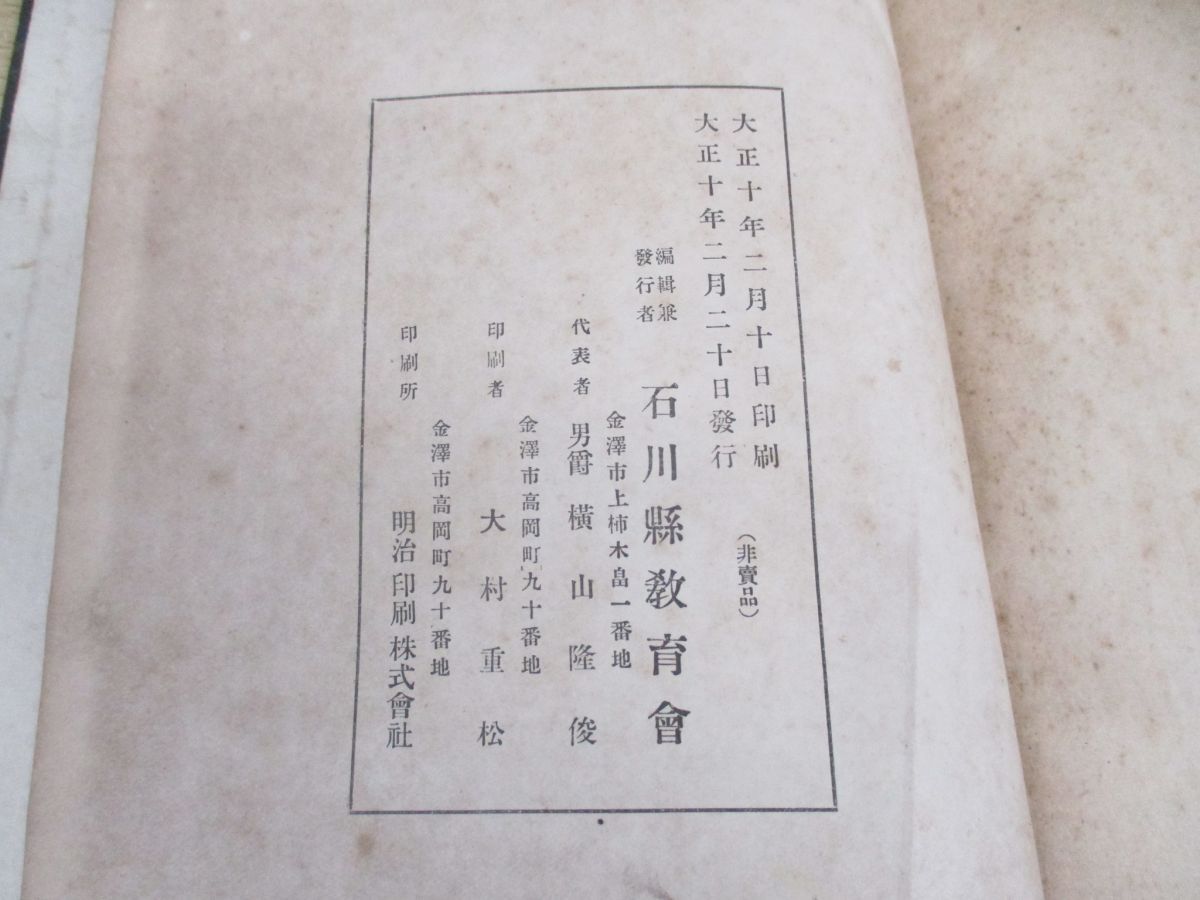 大正十年二月十日印刷
(非賣品)
大正十年二月二十日發行
編輯兼
發行者
石川縣敎育會
金澤市上柿木畠一番地
代表者 男爵 橫山隆俊
金澤市高岡町九十番地
印刷者 大村重松
金澤市高岡町九十番地
印刷所 明治印刷株式會社